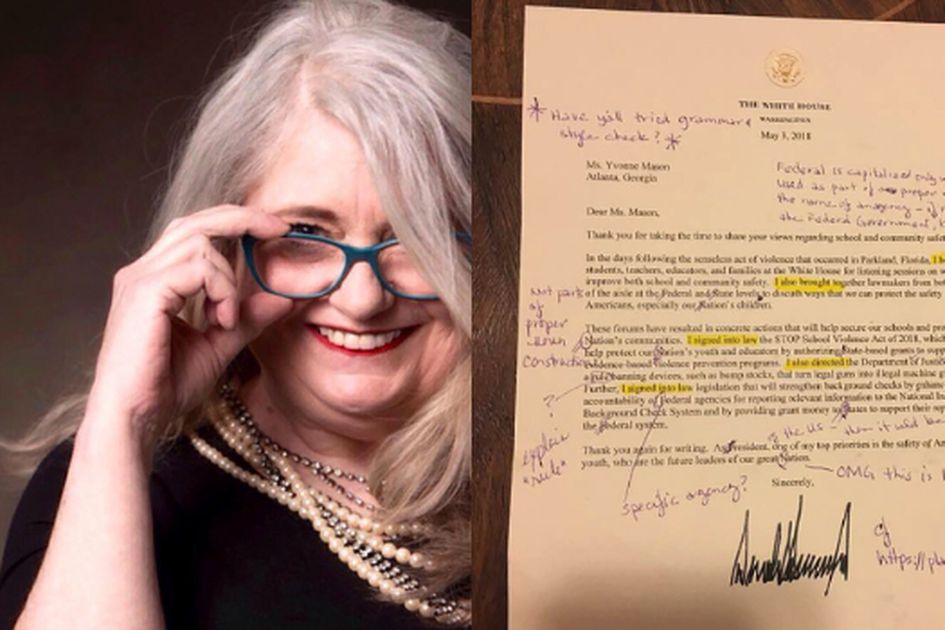 THE WHITE HOUSE
WASHINGTON
May 3, 2018
* Have y'all tried grammar &
style check? *
Ms. Yvonne Mason
Atlanta, Georgia
Federal is capitalized only w
used as part of proper
the name of an agency - i
the Federal Government,
Dear Ms. Mason,
Thank you for taking the time to share your views regarding school and community safet
In the days following the senseless act of violence that occurred in Parkland, Florida, I h
students, teachers, educators, and families at the White House for listening sessions on
improve both school and community safety. I also brought together lawmakers from bo
of the aisle at the Federal and State levels to discuss ways that we can protect the safety
Americans, especially our Nation's children.
Not part
of
proper
noun
construction
These forums have resulted in concrete actions that will help secure our schools and pro
Nation's communities. I signed into law the STOP School Violence Act of 2018, which
help protect our Nation's youth and educators by authorizing State-based grants to suppo
evidence-based violence prevention programs. I also directed the Department of Justice
banning devices, such as bump stocks, that turn legal guns into illegal machine g
Further, I signed into law legislation that will strengthen background checks by enhan
accountability of Federal agencies for reporting relevant information to the National In
Background Check System and by providing grant money to States to support their re
the Federal system.
?
explain
"rule"
of the US - then it would be
Thank you again for writing. As President, one of my top priorities is the safety of Am
youth, who are the future leaders of our great Nation.
OMG this is
specific agency?
Sincerely,
https://pl